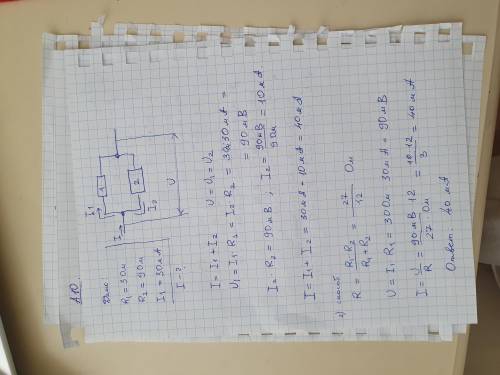 А10.
Дано:
R₁ = 3 Ом
R₂ = 9 Ом
I₁ = 30 мА
I - ?
I₁
I
1
2
I₂
U
I = I₁ + I₂
U = U₁ = U₂
U₁ = I₁ · R₁ = I₂ · R₂ = 3 Ом · 30 мА =
= 90 мВ
I₂ = R₂ = 90 мВ ; I₂ = 90 мВ / 9 Ом = 10 мА.
I = I₁ + I₂ = 30 мА + 10 мА = 40 мА
2) способ
R = R₁ · R₂ / R₁ + R₂ = 27 / 12 Ом
U = I₁ · R₁ = 3 Ом · 30 мА = 90 мВ
I = U / R = 90 мВ · 12 / 27 Ом = 10 · 12 / 3 = 40 мА
Ответ: 40 мА